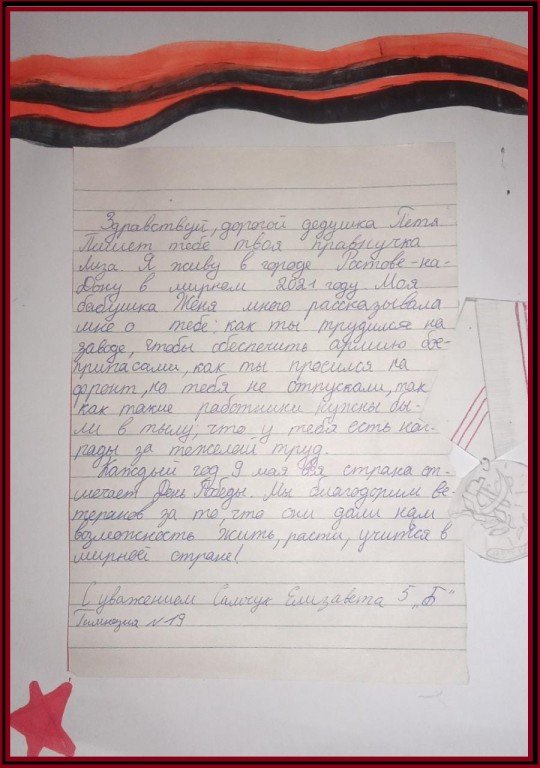 Здравствуй, дорогой дедушка Петя
Пишет тебе твоя правнучка
Лиза. Я живу в городе Ростове-на-
Дону в мирном 2021 году. Моя
бабушка Женя много рассказывала
мне о тебе: как ты трудился на
заводе, чтобы обеспечить армию бое-
припасами, как ты просился на
фронт, но тебя не отпускали, так
как такие работники нужны бы-
ли в тылу; что у тебя есть наг-
рады за тяжелый труд.
Каждый год 9 мая вся страна от-
мечает День Победы. Мы благодарим ве-
теранов за то, что они дали нам
возможность жить, расти, учиться в
мирной стране!
С уважением Салочук Елизавета 5 „Б"
Гимназия №19